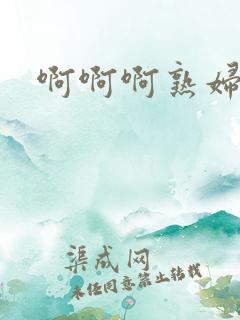 啊啊啊熟婦
渠成网
未经同意禁止转载